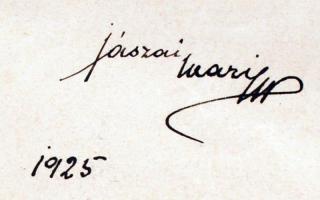 Jászai Mari
1925